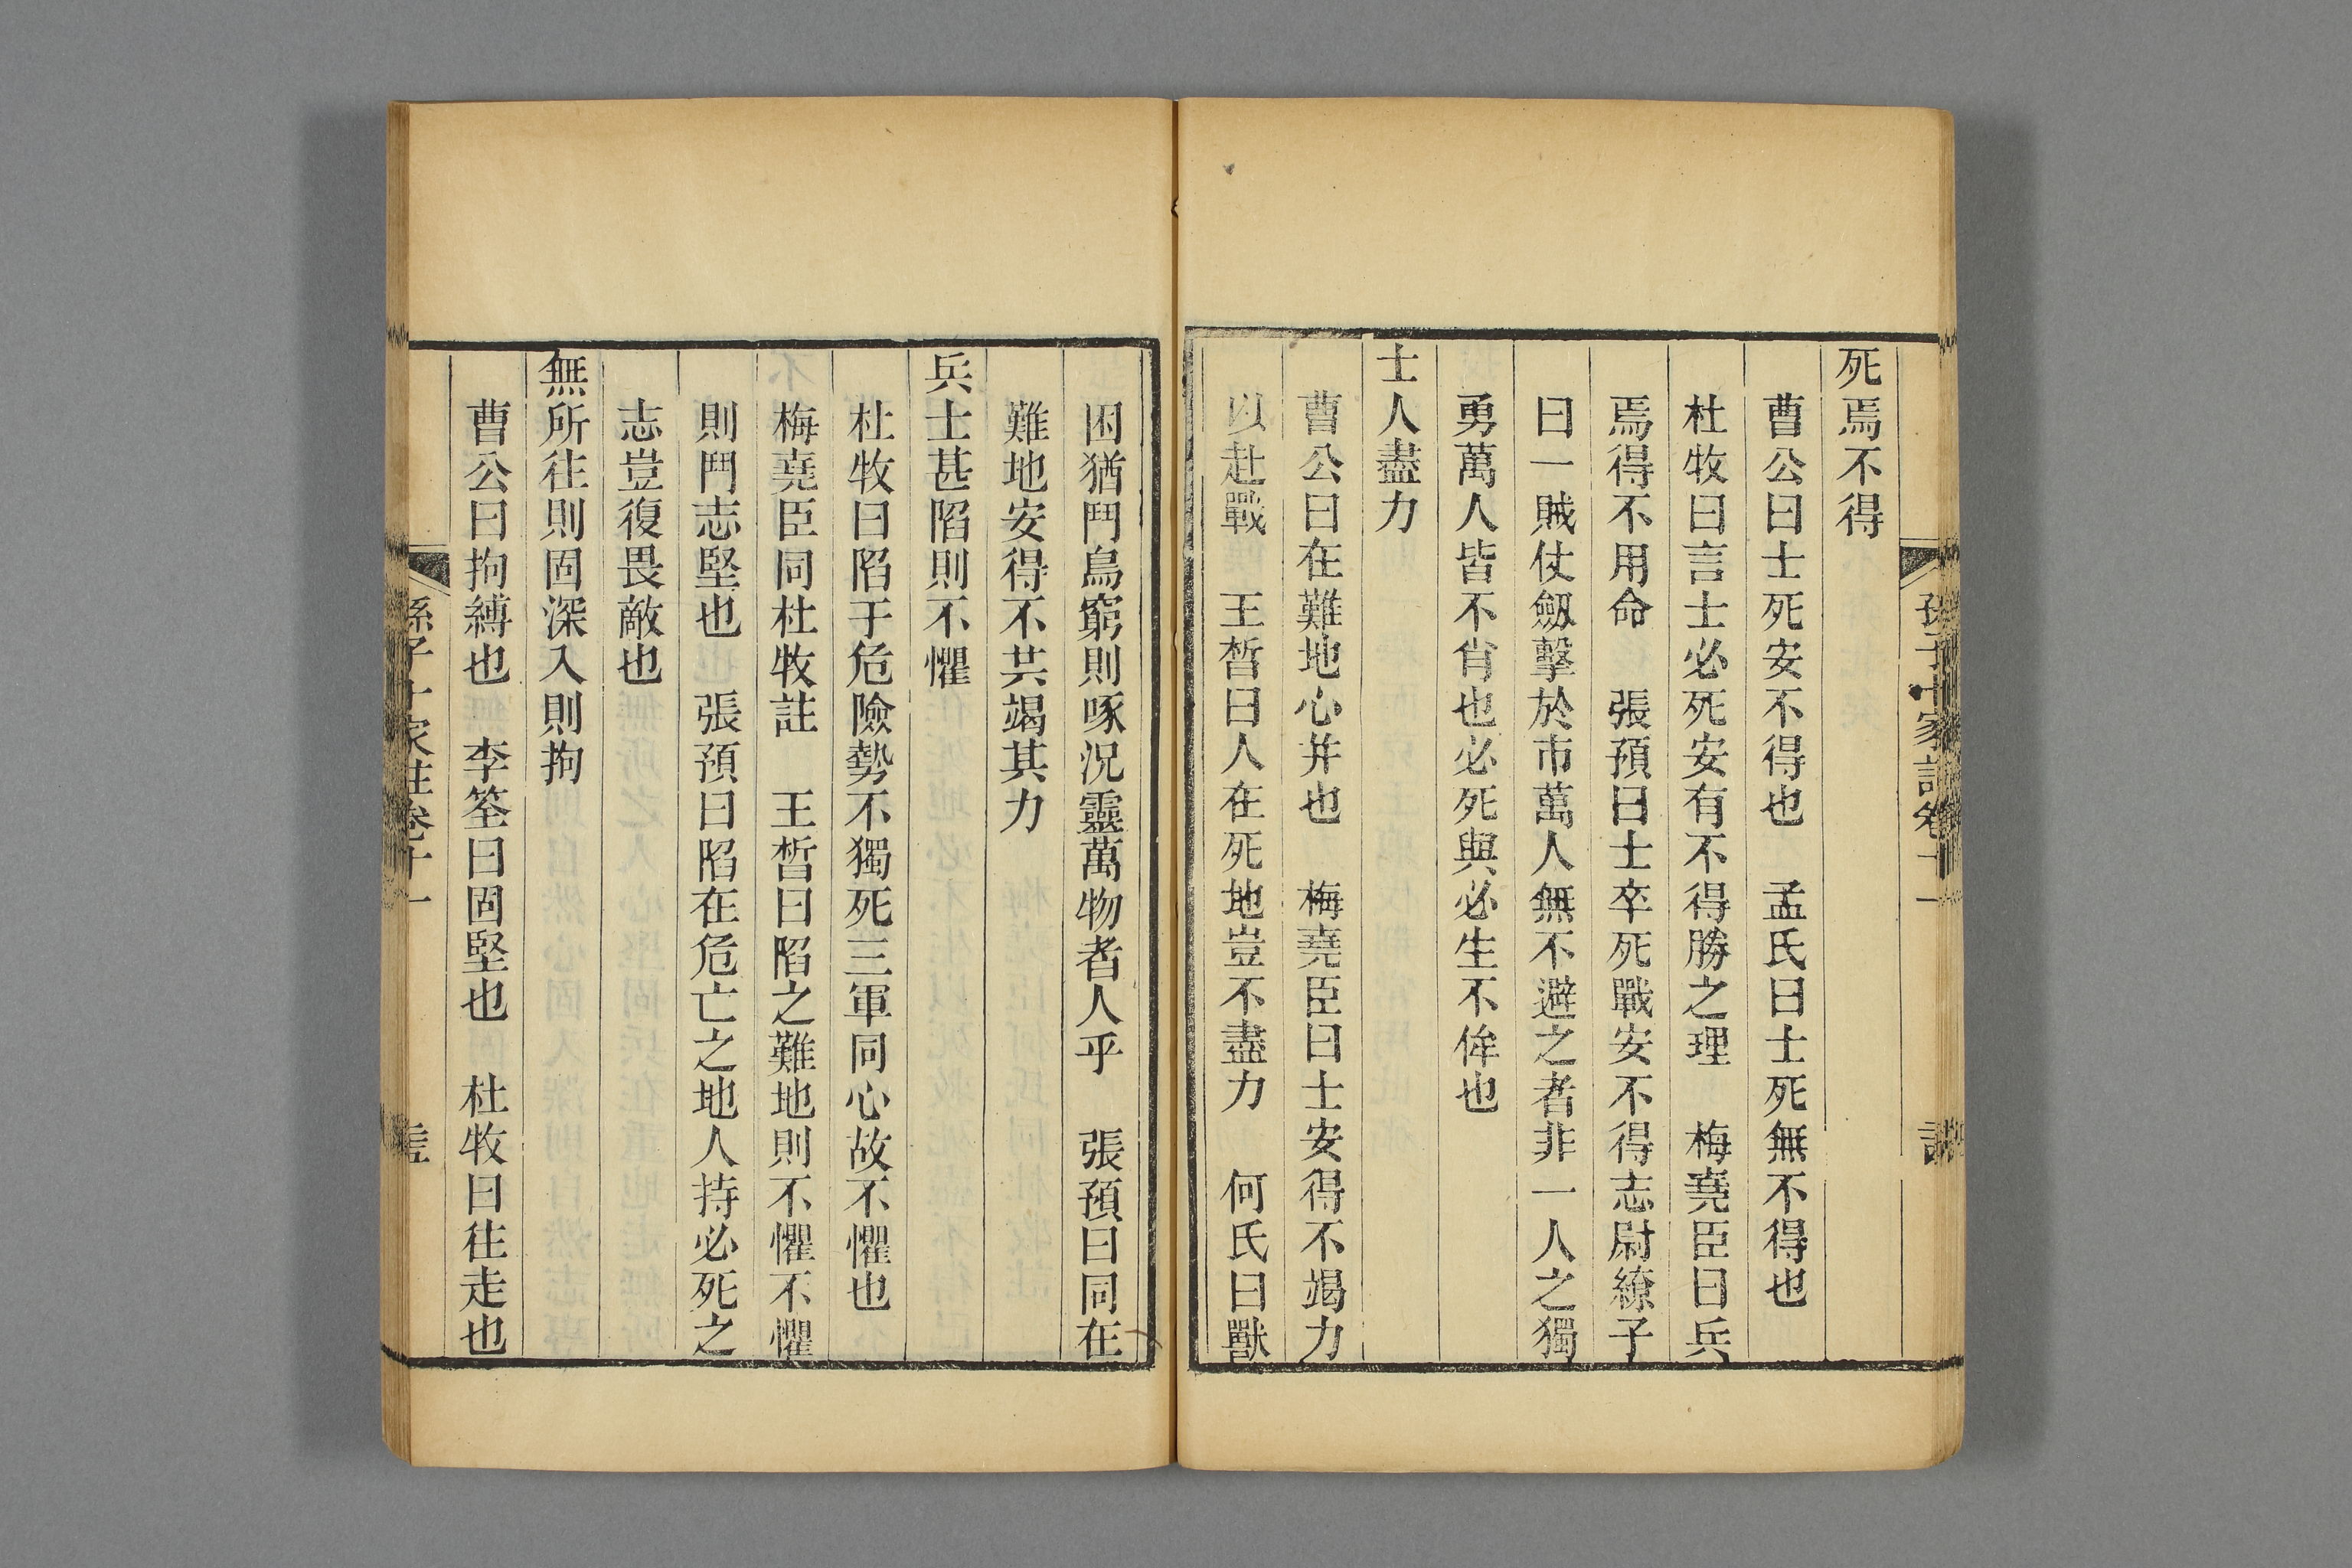 孫子十家註卷十一
死焉不得
曹公曰士死安不得也　孟氏曰士死無不得也
杜牧曰言士必死安有不得勝之理　梅堯臣曰兵
焉得不用命　張預曰士卒死戰安不得志尉繚子
曰一賊仗劒擊於市萬人無不避之者非一人之獨
勇萬人皆不肖也必死與必生不侔也
士人盡力
曹公曰在難地心并也　梅堯臣曰士安得不竭力
以赴戰　王晳曰人在死地豈不盡力　何氏曰獸
困猶鬥鳥窮則啄況靈萬物者人乎　張預曰同在
難地安得不共竭其力
兵士甚陷則不懼
杜牧曰陷于危險勢不獨死三軍同心故不懼也
梅堯臣同杜牧註　王晳曰陷之難地則不懼不懼
則鬥志堅也　張預曰陷在危亡之地人持必死之
志豈復畏敵也
無所往則固深入則拘
曹公曰拘縛也　李筌曰固堅也　杜牧曰往走也
孫子十家註卷十一